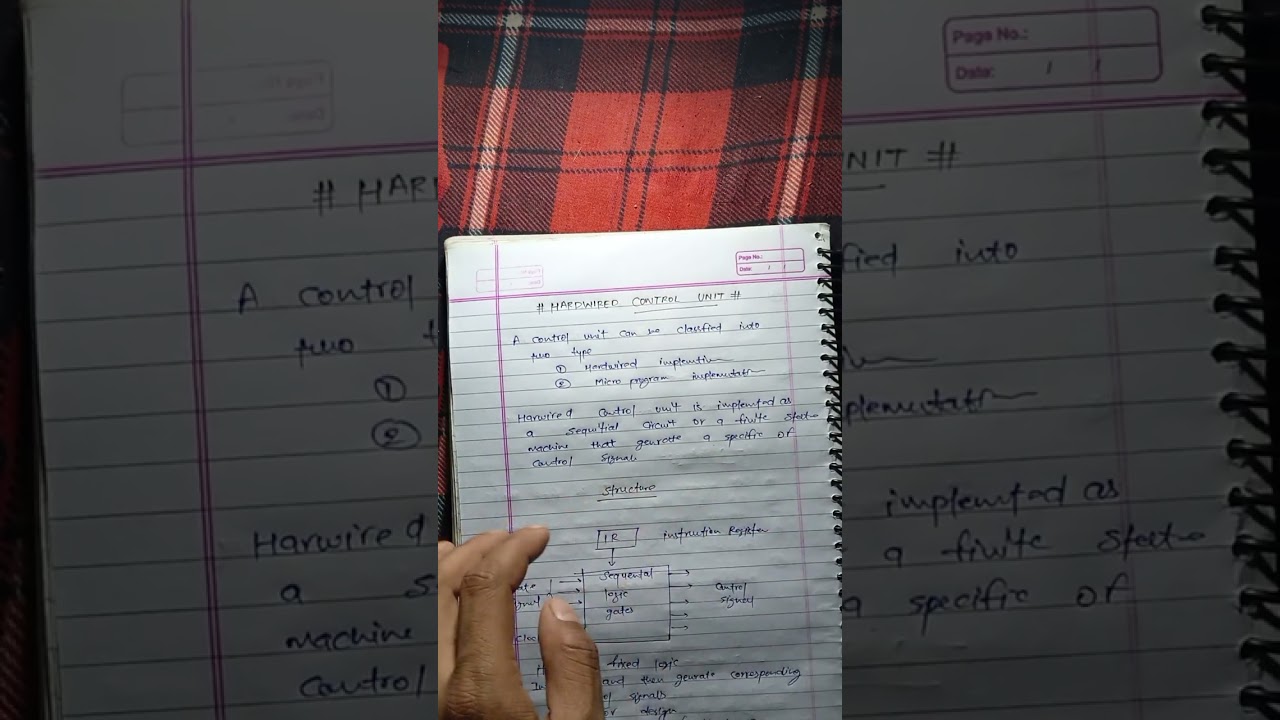 Page No.:
Date: / /
# HARDWIRED CONTROL UNIT #
A control unit can be classified into
two type
① Hardwired implemtion
② Micro program implemutatn
Harwired control unit is implemted as
a sequtial circuit or a finite state
machine that genrate a specific of
control signal
Structure
IR instruction Register
Sequental
logic
gates
control
signal
fixed logic
and then genrate corresponding
signals
or design